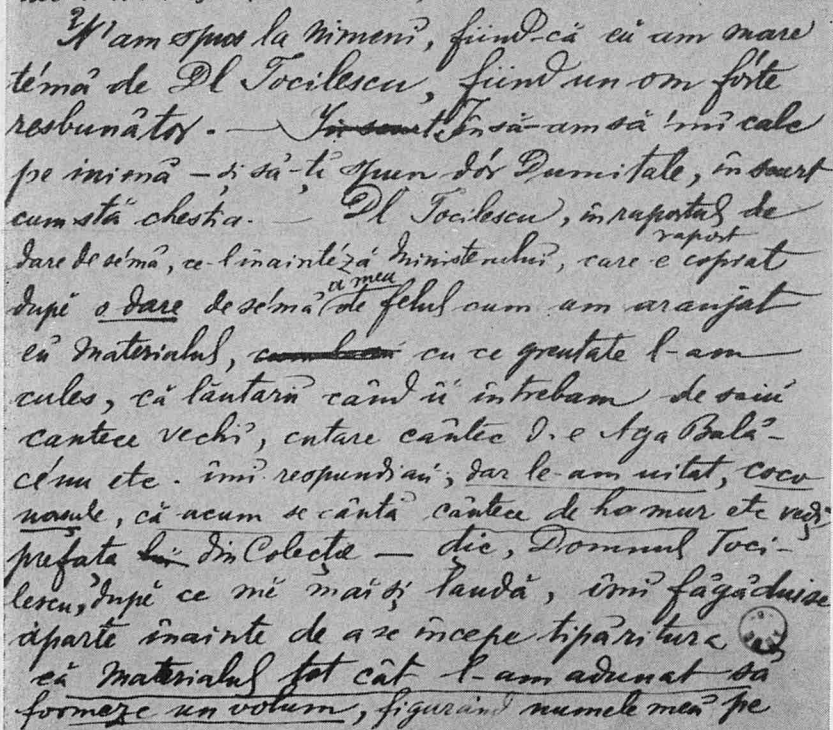 N'am spus la nimeni, fiind-că eŭ am mare
témă de Dl Tocilescu, fiind un om fórte
resbunător. — Însă-am să 'mi calc
pe inimă — și să-ți spun dór Dumitale, în scurt
cum stă chestia. — Dl Tocilescu, în raportul de
dare de sémă, ce-l înainteză Ministerului, care raport e copiat
după o dare de sémă a mea de felul cum am aranjat
eŭ Materialul, cu ce greutate l-am
cules, că lăutarii când îi întrebam de sciŭ
cantece vechĭ, cutare cântec d. e Aga Bală-
cénu etc. îmi respundiaŭ, dar le-am uitat, coco
nașule, că acum se cântă cântece de hamur etc vedĭ
prefața din Colecție — dic, Domnul Toci-
lescu, după ce mĕ mai și laudă, îmi făgăduise
aparte înainte de a se începe tipăritura
că Materialul tot cât l-am adunat să
formeze un volum, figurând numele meŭ pe